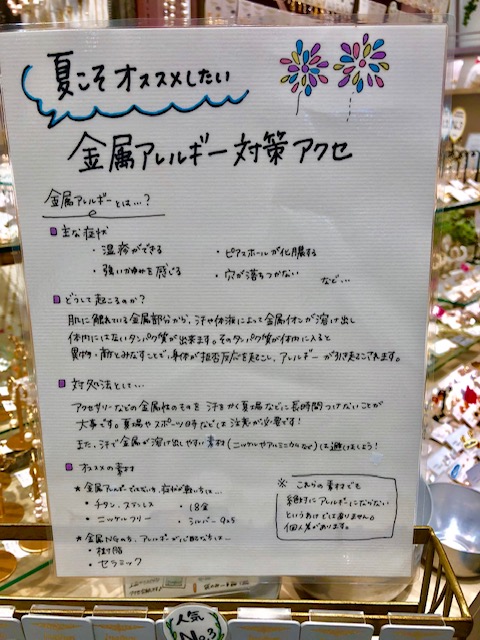 夏こそオススメしたい
金属アレルギー対策アクセ
金属アレルギーとは…?
主な症状
・湿疹ができる ・ピアスホールが化膿する
・強いかゆみを感じる ・穴が落ちつかない
など…
どうして起こるのか?
肌に触れている金属部分から、汗や体液によって金属イオンが溶け出し
体内にはないタンパク質が出来ます。そのタンパク質が体内に入ると
異物・敵とみなすことで、身体が拒否反応を起こし、アレルギーが引き起こされます。
対処法として…
アクセサリーなどの金属性のものを 汗をかく夏場などに長時間つけないことが
大事です。夏場やスポーツ時などは注意が必要です!
また、汗で金属が溶け出しやすい素材(ニッケルやアルミニウムなど)は避けましょう!
オススメの素材
★金属アレルギーではあるけど、症状が軽い方は…
・チタン、ステンレス ・18金
・ニッケルフリー ・シルバー925
★金属NGの方、アレルギーが心配な方は…
・樹脂
・セラミック
※ これらの素材でも
絶対にアレルギーにならない
というわけでは有りません。
個人差があります。
人気
No.3